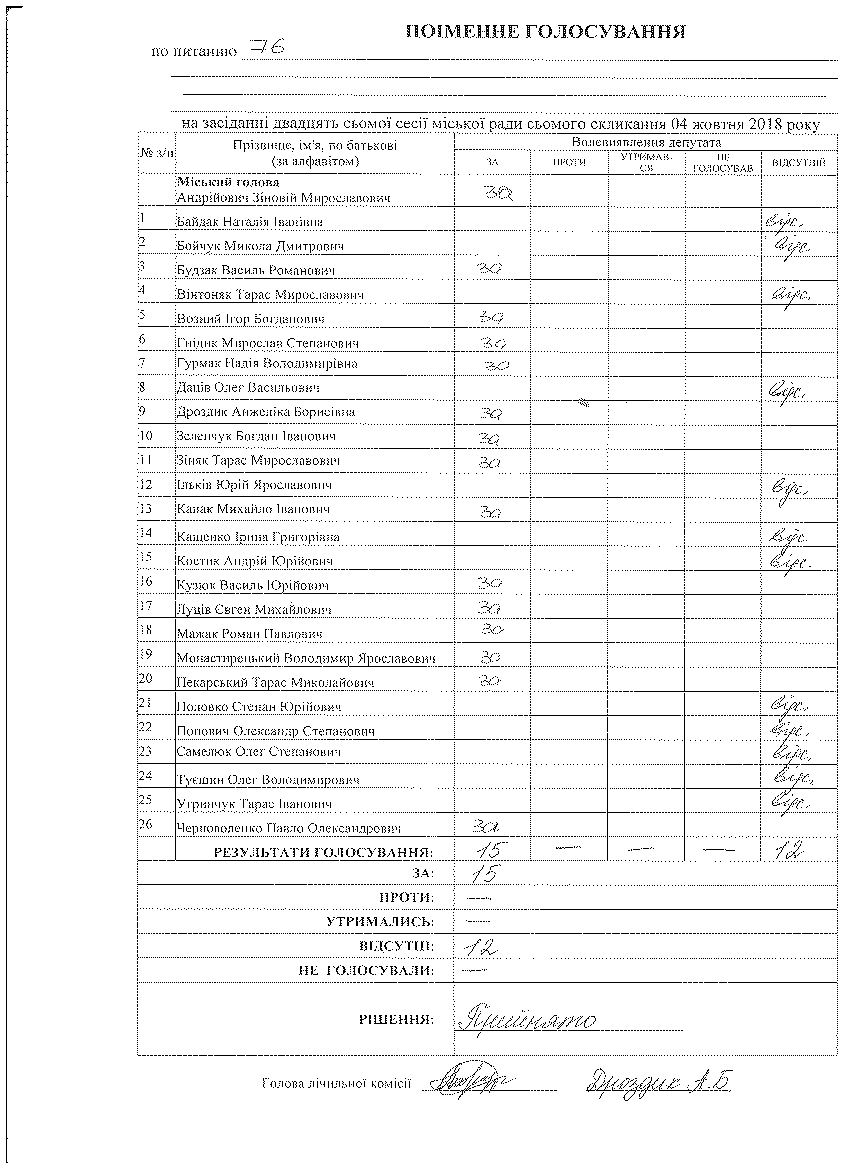 ПОІМЕННЕ ГОЛОСУВАННЯ
по питанню 76
на засіданні двадцять сьомої сесії міської ради сьомого скликання 04 жовтня 2018 року
№ з/п Прізвище, ім'я, по батькові (за алфавітом) Волевиявлення депутата
ЗА ПРОТИ УТРИМАВ-СЯ НЕ ГОЛОСУВАВ ВІДСУТНІЙ
Міський голова
Андрійович Зіновій Мирославович за
1 Байдак Наталія Іванівна відс.
2 Бойчук Микола Дмитрович відс.
3 Будзак Василь Романович за
4 Вінтоняк Тарас Мирославович відс.
5 Возний Ігор Богданович за
6 Гнідик Мирослав Степанович за
7 Гурмак Надія Володимирівна за
8 Даців Олег Васильович відс.
9 Дроздик Анжеліка Борисівна за
10 Зеленчук Богдан Іванович за
11 Зіняк Тарас Мирославович за
12 Ільків Юрій Ярославович відс.
13 Капак Михайло Іванович за
14 Кащенко Ірина Григорівна відс.
15 Костик Андрій Юрійович відс.
16 Кузюк Василь Юрійович за
17 Луців Євген Михайлович за
18 Мажак Роман Павлович за
19 Монастирецький Володимир Ярославович за
20 Пекарський Тарас Миколайович за
21 Половко Степан Юрійович відс.
22 Попович Олександр Степанович відс.
23 Самелюк Олег Степанович відс.
24 Туєшин Олег Володимирович відс.
25 Угринчук Тарас Іванович відс.
26 Черноволенко Павло Олександрович за
РЕЗУЛЬТАТИ ГОЛОСУВАННЯ: 15 — — — 12
ЗА: 15
ПРОТИ: —
УТРИМАЛИСЬ: —
ВІДСУТНІ: 12
НЕ ГОЛОСУВАЛИ: —
РІШЕННЯ: Прийнято
Голова лічильної комісії Дроздик А.Б